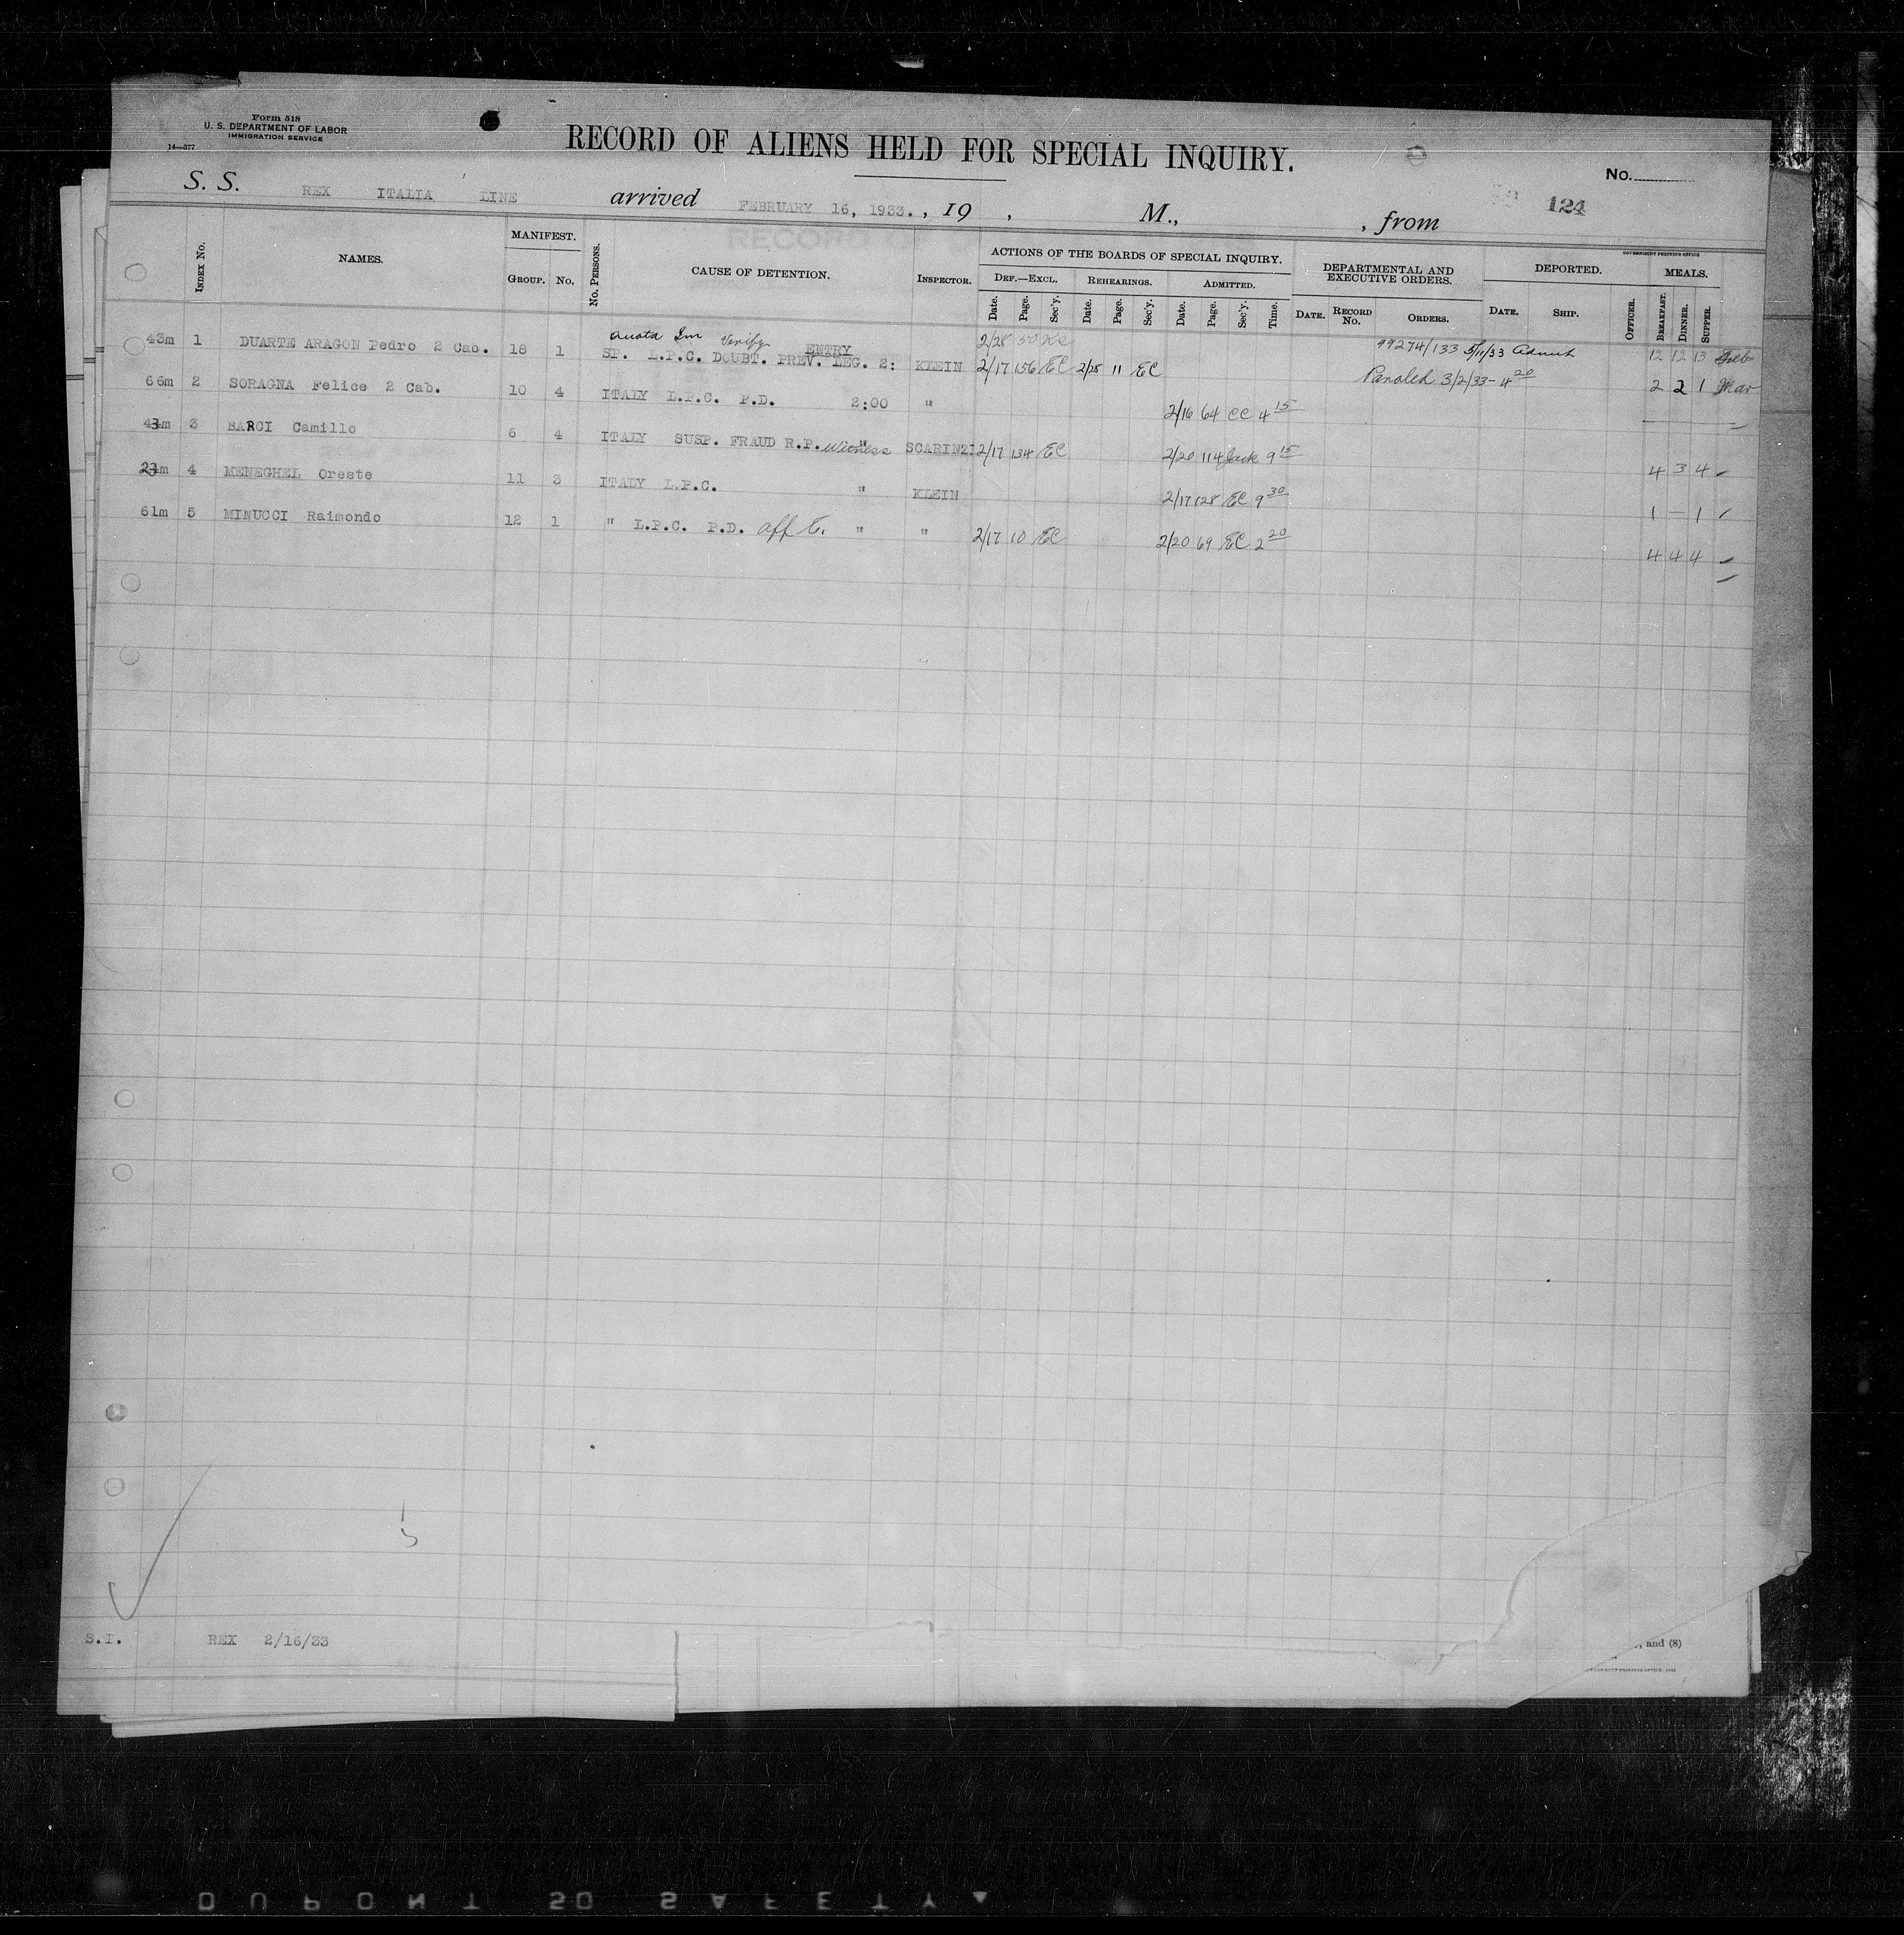 Form 518
U. S. DEPARTMENT OF LABOR
IMMIGRATION SERVICE
14—377
RECORD OF ALIENS HELD FOR SPECIAL INQUIRY.
No.
S. S. REX ITALIA LINE arrived FEBRUARY 16, 1933. , 19 , M., , from
124
GOVERNMENT PRINTING OFFICE
INDEX No. NAMES. MANIFEST. No. PERSONS. CAUSE OF DETENTION. INSPECTOR. ACTIONS OF THE BOARDS OF SPECIAL INQUIRY. DEPARTMENTAL AND EXECUTIVE ORDERS. DEPORTED. MEALS.
GROUP. No. DEF.—EXCL. REHEARINGS. ADMITTED. OFFICER. BREAKFAST. DINNER. SUPPER.
Date. Page. Sec'y. Date. Page. Sec'y. Date. Page. Sec'y. Time. DATE. RECORD No. ORDERS. DATE. SHIP.
Quota Im Verify ENTRY 2/28 99274/133 5/11/33 Admit 12 12 13 Feb
43m 1 DUARTE ARAGON Pedro 2 Cab. 18 1 SP. L.P.C. DOUBT. PREV. LEG. 2: KLEIN 2/17 156 EC 2/28 11 EC Paroled 3/2/33 - 4 20 2 2 1 Mar
66m 2 SORAGNA Felice 2 Cab. 10 4 ITALY L.P.C. P.D. 2:00 " 2/16 64 CC 4 15
43m 3 BARCI Camillo 6 4 ITALY SUSP. FRAUD R.P. Witness " SCARINZI 2/17 134 EC 2/20 114 Jack 9 15 4 3 4
23m 4 MENEGHEL Oreste 11 3 ITALY L.P.C. " KLEIN 2/17 128 EC 9 30 1 — 1
61m 5 MINUCCI Raimondo 12 1 " L.P.C. P.D. aff E. " " 2/17 10 EC 2/20 69 EC 2 20 4 4 4
5
S.I. REX 2/16/33
, and (8)
DUPONT 50 SAFETY